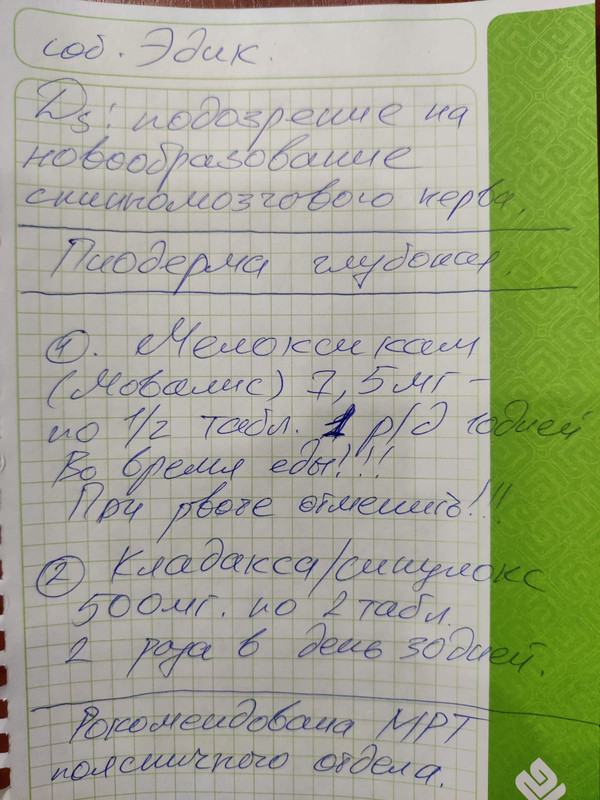 соб. Эдик.
Ds: подозрение на
новообразование
спинномозгового нерва.
Пиодерма глубокая.
1. Мелоксикам
(Мовалис) 7,5мг -
по 1/2 табл. 1 р/д 10дней
Во время еды!!!
При рвоте отменить!!!
2 Кладакса/синулокс
500мг. по 2 табл.
2 раза в день 30дней.
Рекомендована МРТ
поясничного отдела.